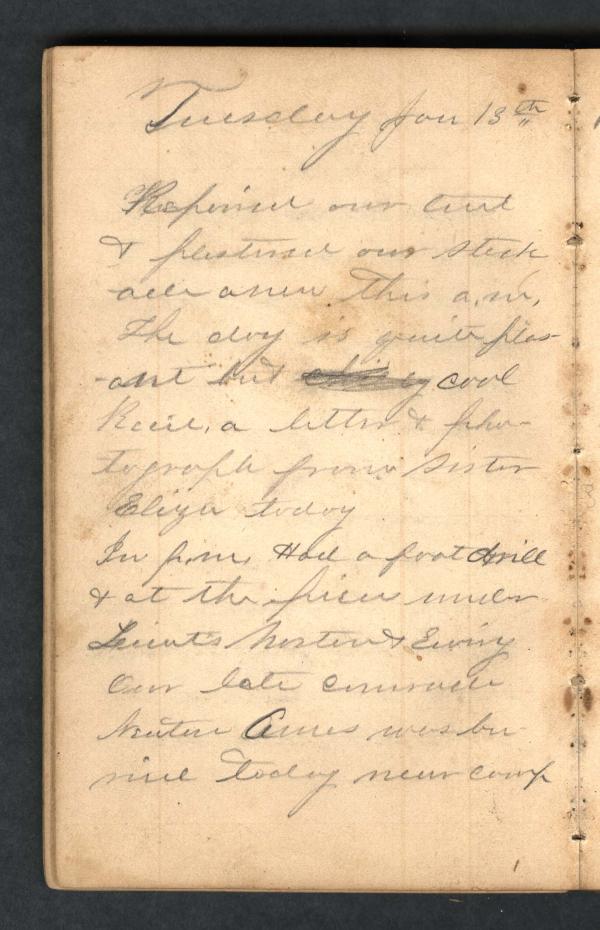 Tuesday Jan 13th
Repaired our tent
& plastered our stock
ade anew this a.m.
The day is quite pleas-
-ant but cool
Recie. a letter & pho-
tograph from sister
Eliza today
In p.m. Had a foot drill
& at the pieces under
Lieuts Norton & Ewing
Our late comrade
Newton Ames was bu-
ried today near camp